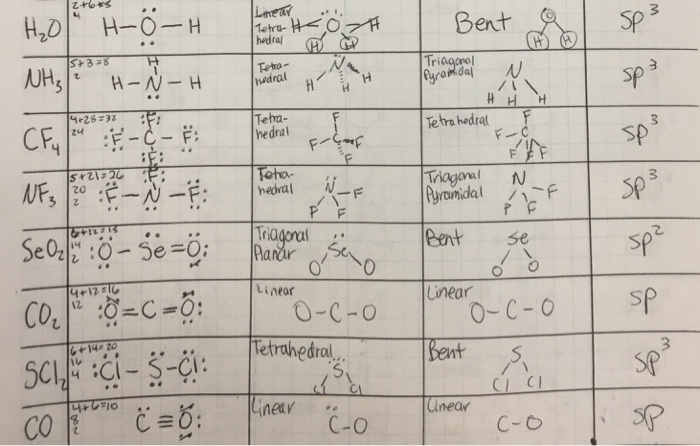 H₂O 2+6=8 4 H-Ö-H Linear Tetra-hedral H O H H H Bent O H H sp³
NH₃ 5+3=8 2 H H-N-H Tetra-hedral N H H H Triagonal Pyramidal N H H H sp³
CF₄ 4+28=32 24 :F: :F-C-F: :F: Tetra-hedral F F-C-F F Tetrahedral F F-C F F F sp³
NF₃ 5+21=26 20 2 :F: :F-N-F: Tetra-hedral N-F F F Triagonal Pyramidal N F F F sp³
SeO₂ 6+12=18 14 2 :O-Se=O: Triagonal Planar Se O O Bent Se O O sp²
CO₂ 4+12=16 12 :O=C=O: Linear O-C-O Linear O-C-O sp
SCl₂ 6+14=20 16 4 :Cl-S-Cl: Tetrahedral S Cl Cl Bent S Cl Cl sp³
CO 4+6=10 8 2 C≡O: Linear C-O Linear C-O sp